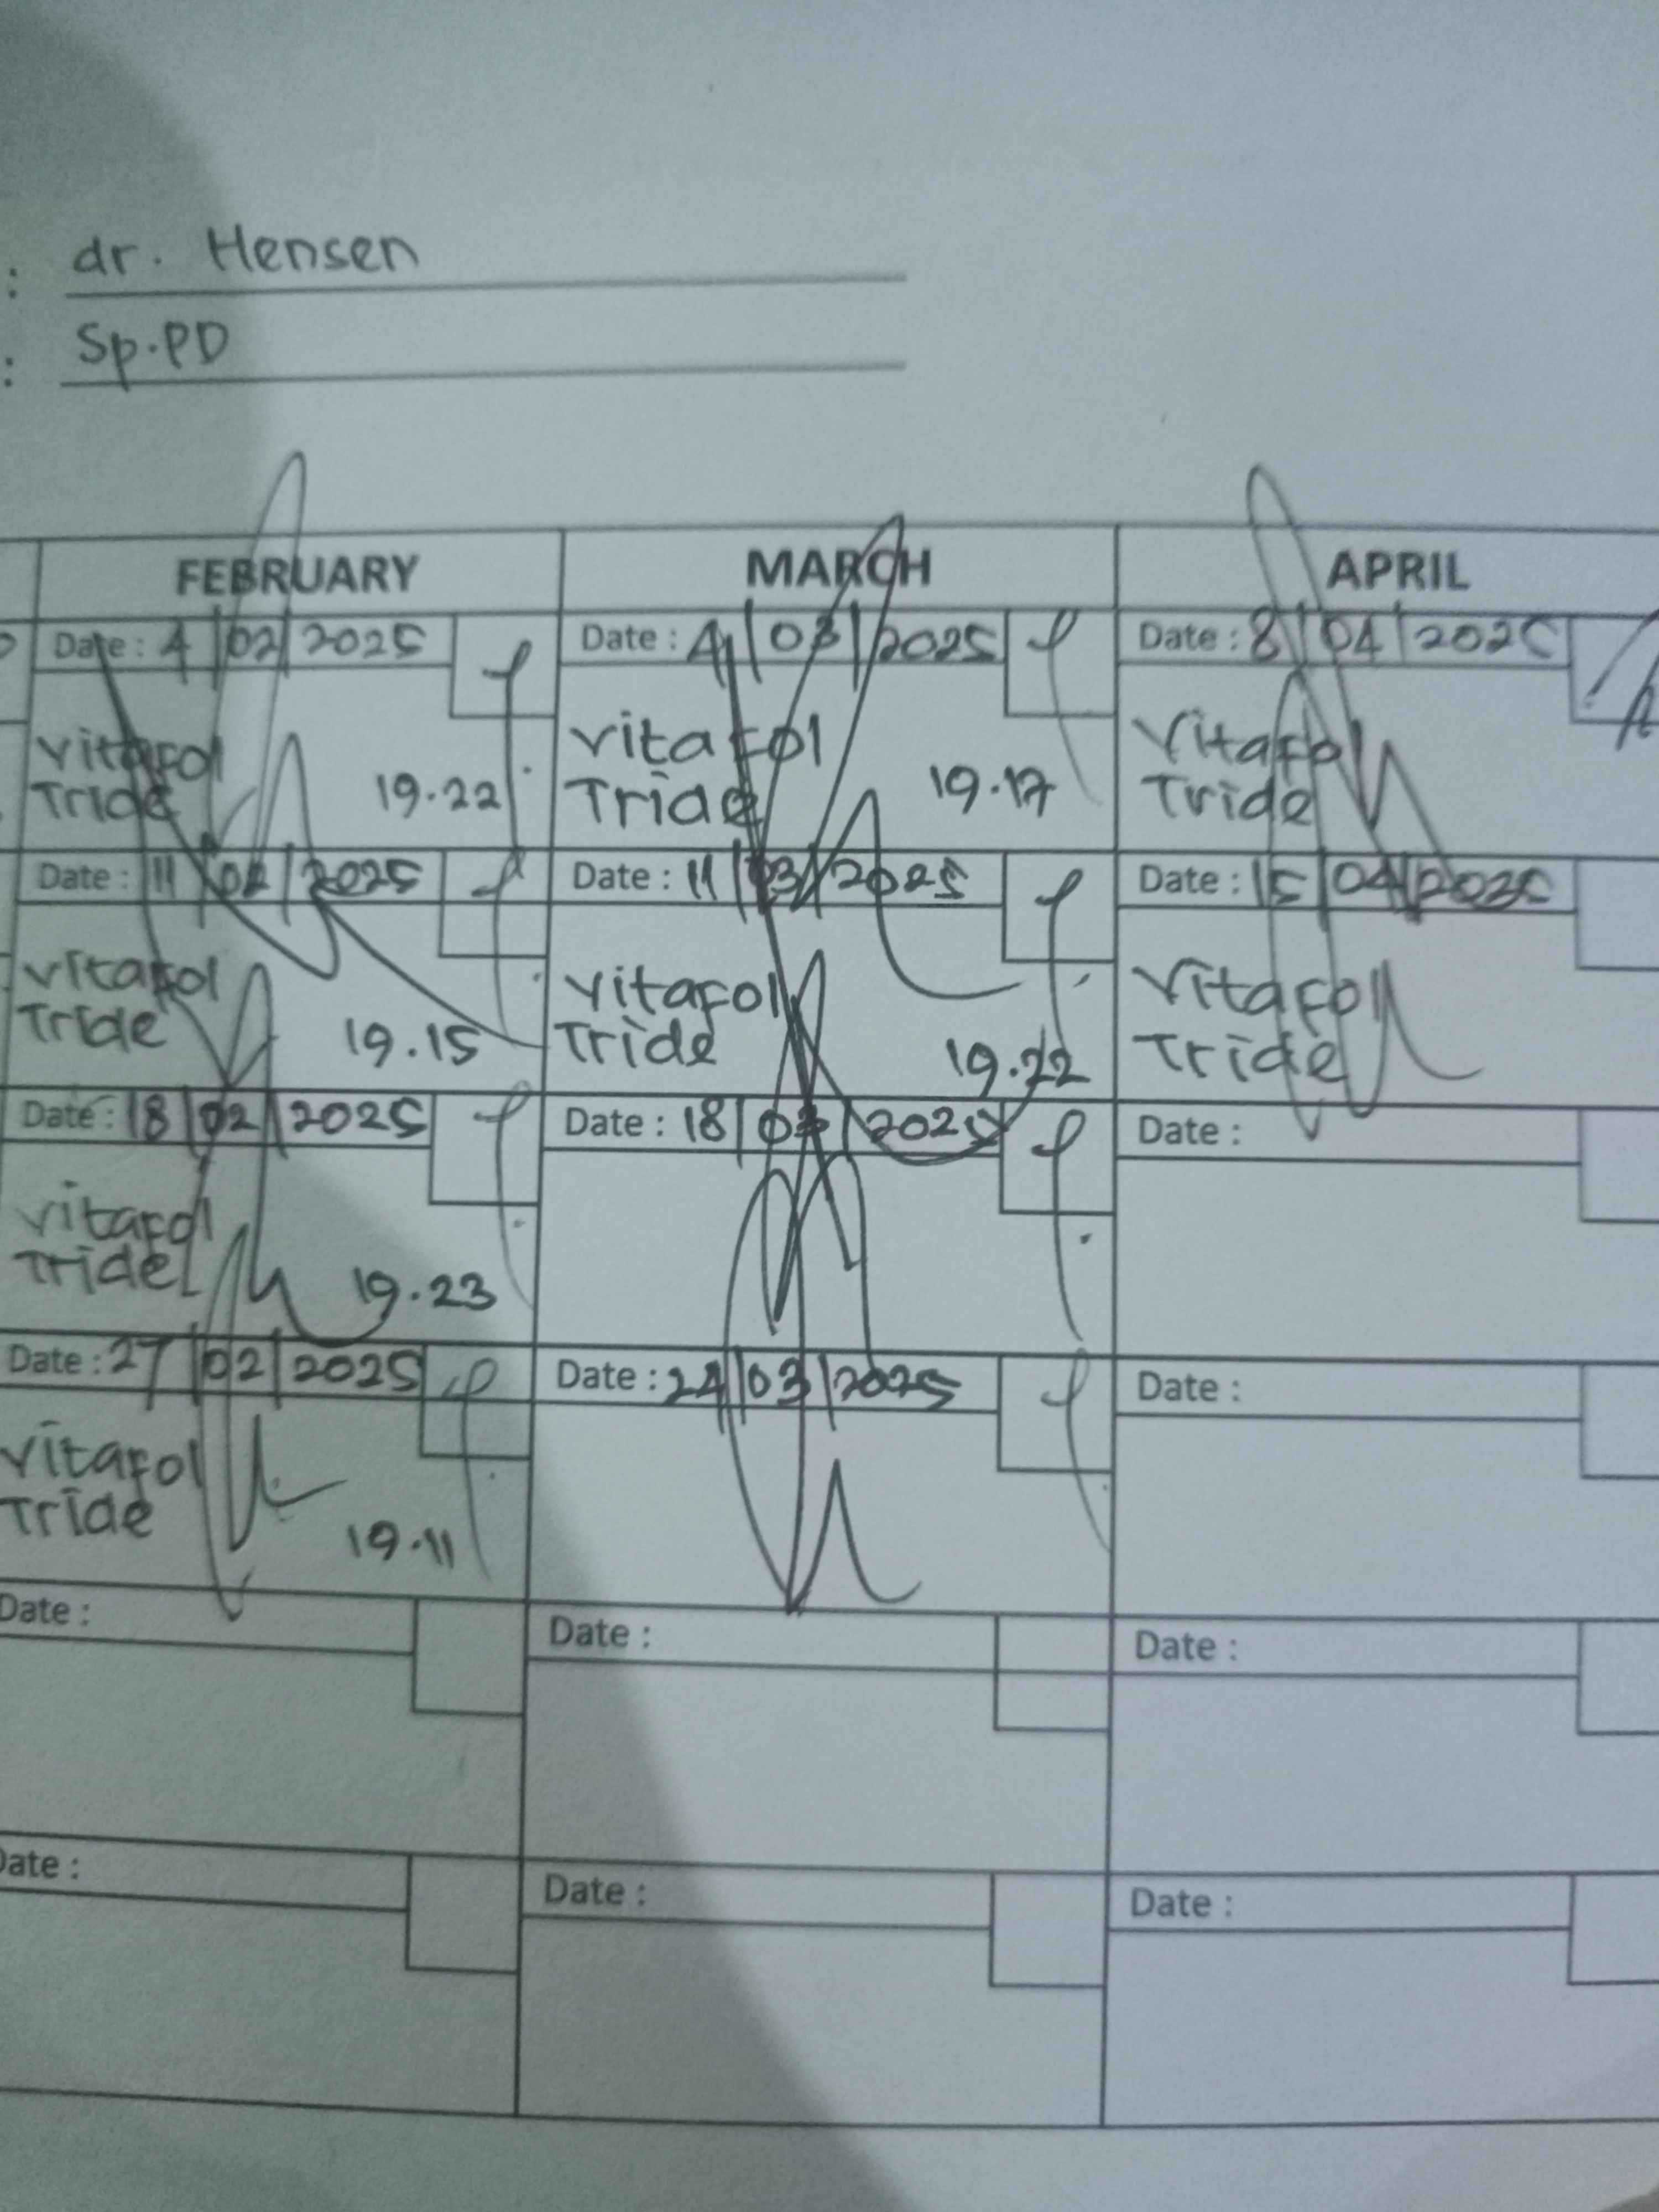 : dr. Hensen
: Sp.PD
FEBRUARY MARCH APRIL
Date : 4/02/2025 Date : 4/03/2025 Date : 8/04/2025
Vitafol Vitafol Vitafol
Tride 19.22 Tride 19.17 Tride
Date : 11/02/2025 Date : 11/03/2025 Date : 15/04/2025
Vitafol Vitafol Vitafol
Tride 19.15 Tride 19.22 Tride
Date : 18/02/2025 Date : 18/03/2025 Date :
Vitafol
Tride 19.23
Date : 27/02/2025 Date : 24/03/2025 Date :
Vitafol
Tride 19.11
Date : Date : Date :
Date : Date : Date :